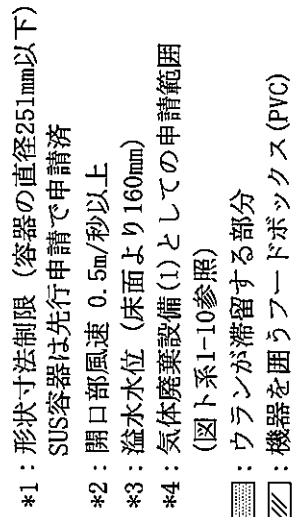 *1：形状寸法制限（容器の直径251mm以下）
SUS容器は先行申請で申請済
*2：開口部風速 0.5m/秒以上
*3：溢水水位（床面より160mm）
*4：気体廃棄設備(1)としての申請範囲
（図ト系1-10参照）
：ウランが滞留する部分
：機器を囲うフードボックス(PVC)